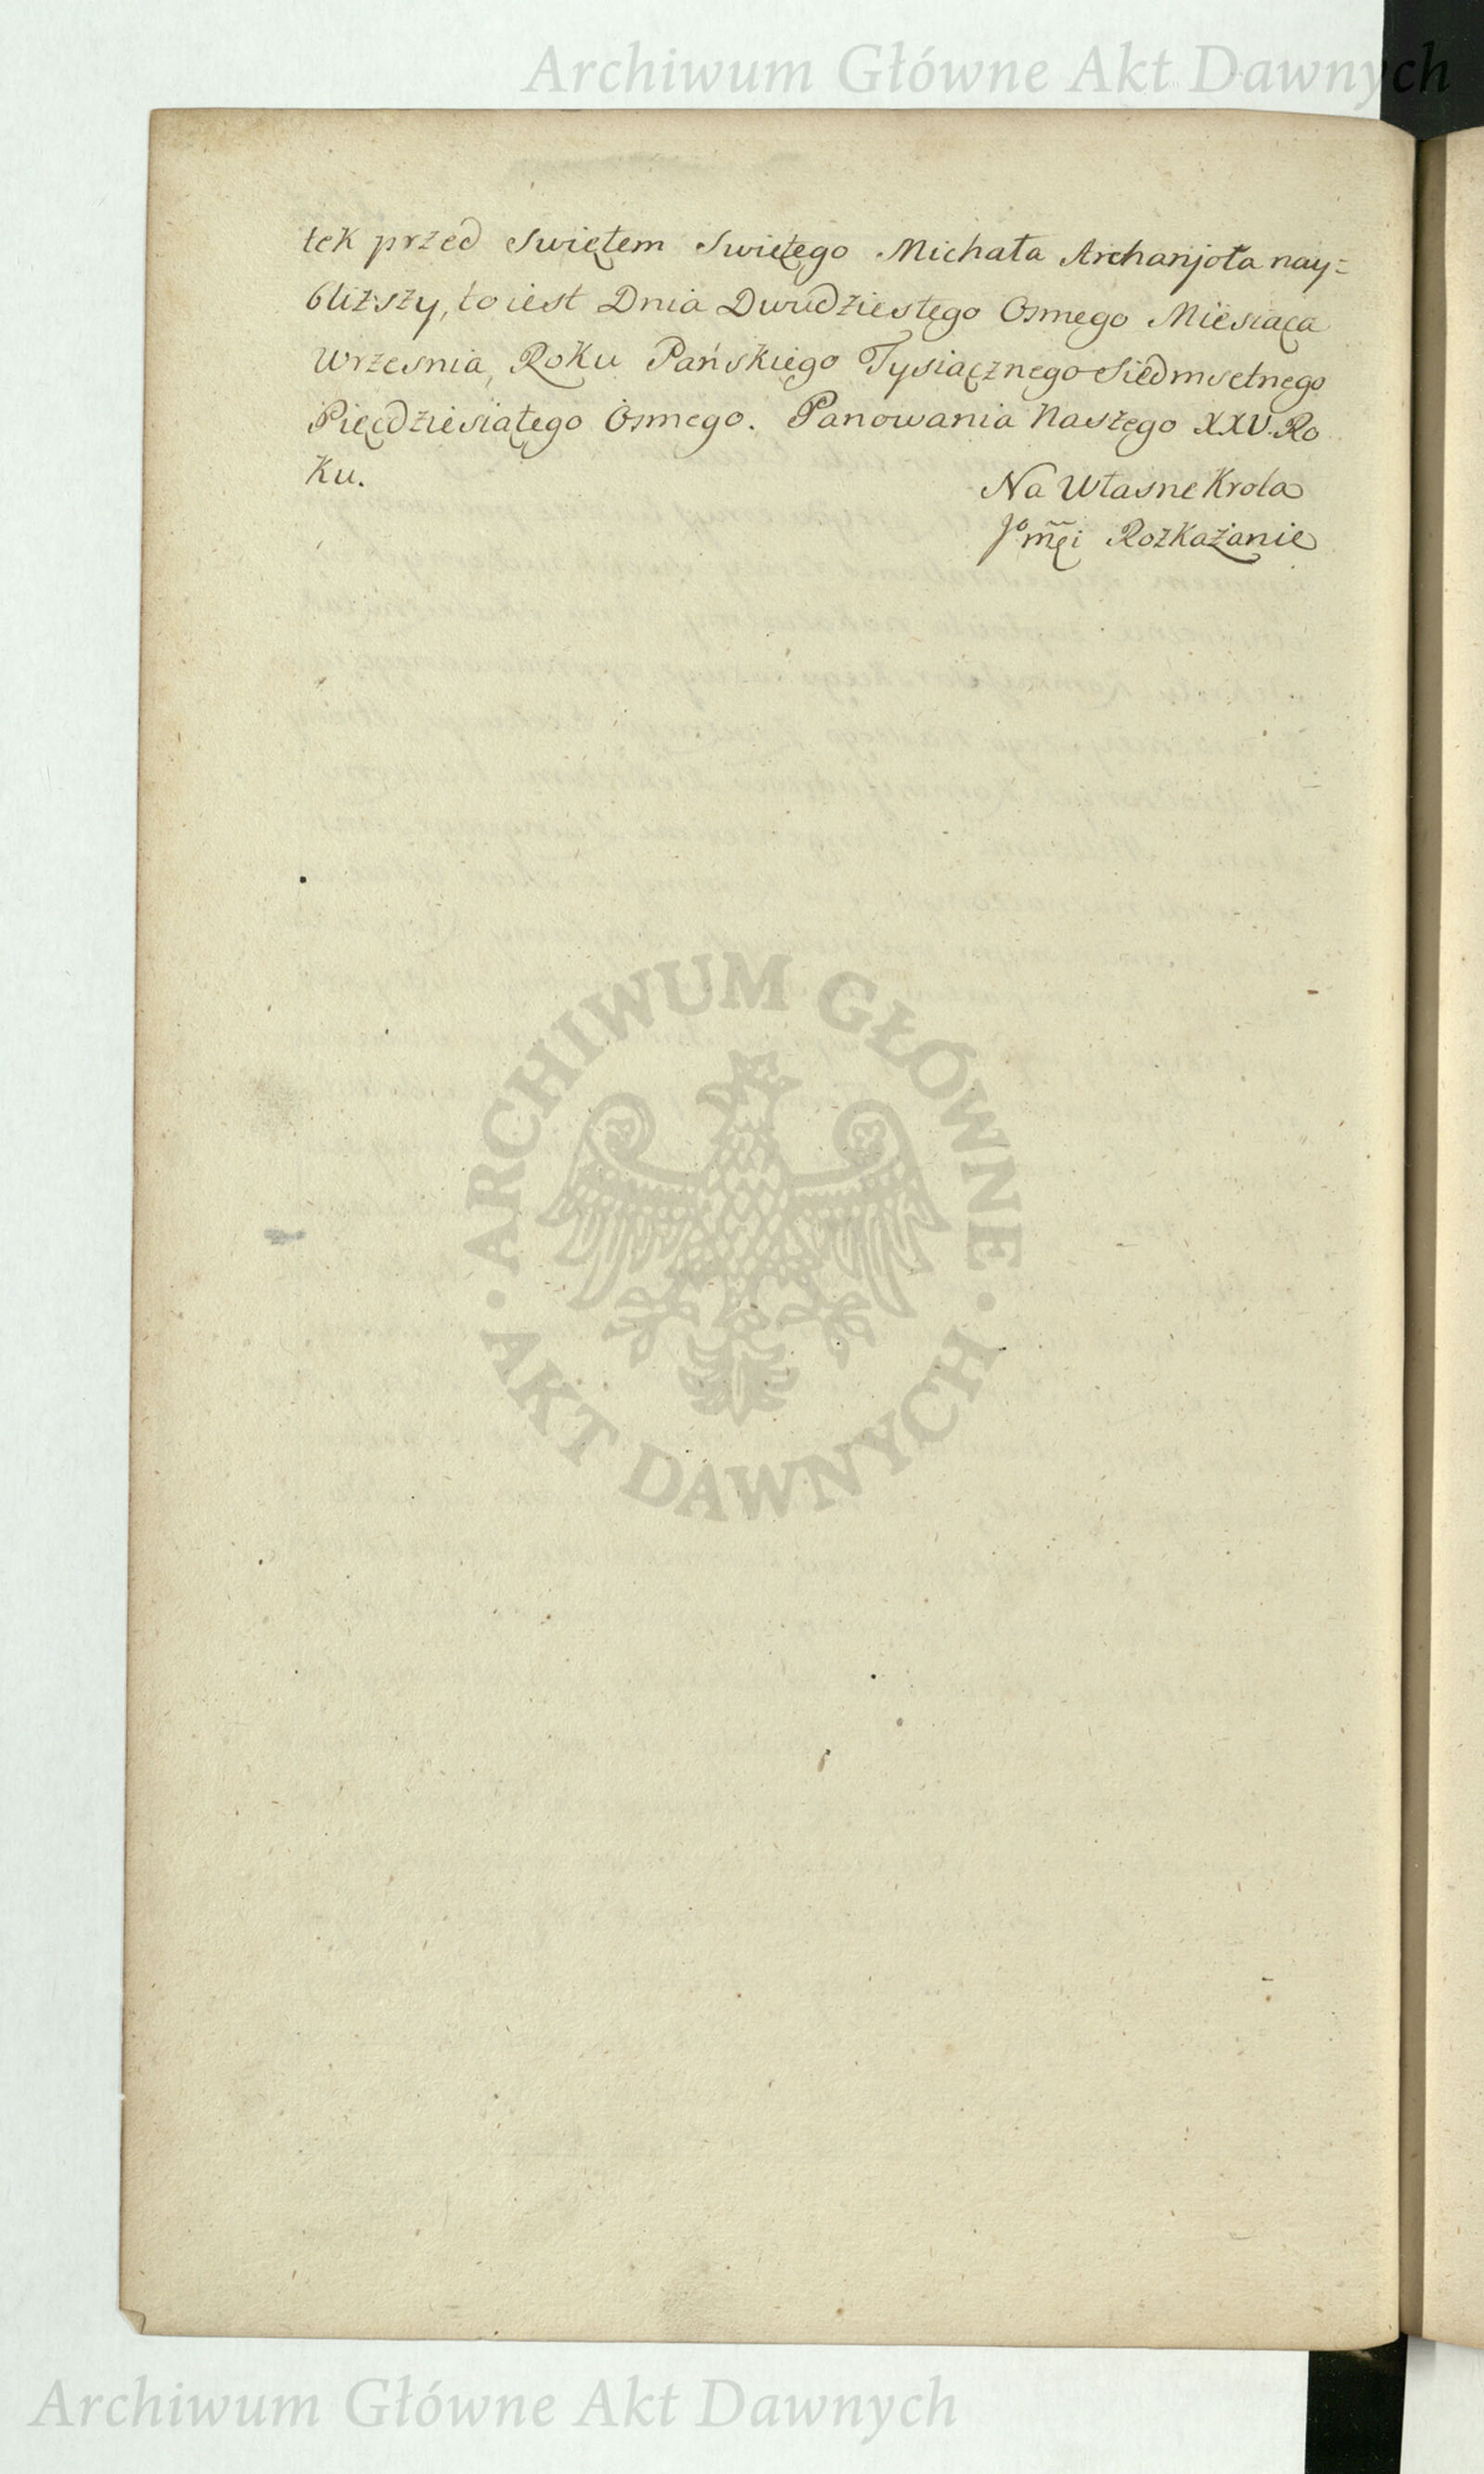 Archiwum Główne Akt Dawnych
tek przed Swiętem Swiętego Michała Archanjoła nay=
bliższy, to iest Dnia Dwudziestego Osmego Miesiąca
Wrzesnia, Roku Pańskiego Tysiącznego Siedmsetnego
Pięcdziesiątego Osmego. Panowania Naszego XXV. Ro
ku.
Na Własne Krola
Jo mći Rozkazanie
ARCHIWUM GŁÓWNE
AKT DAWNYCH
Archiwum Główne Akt Dawnych